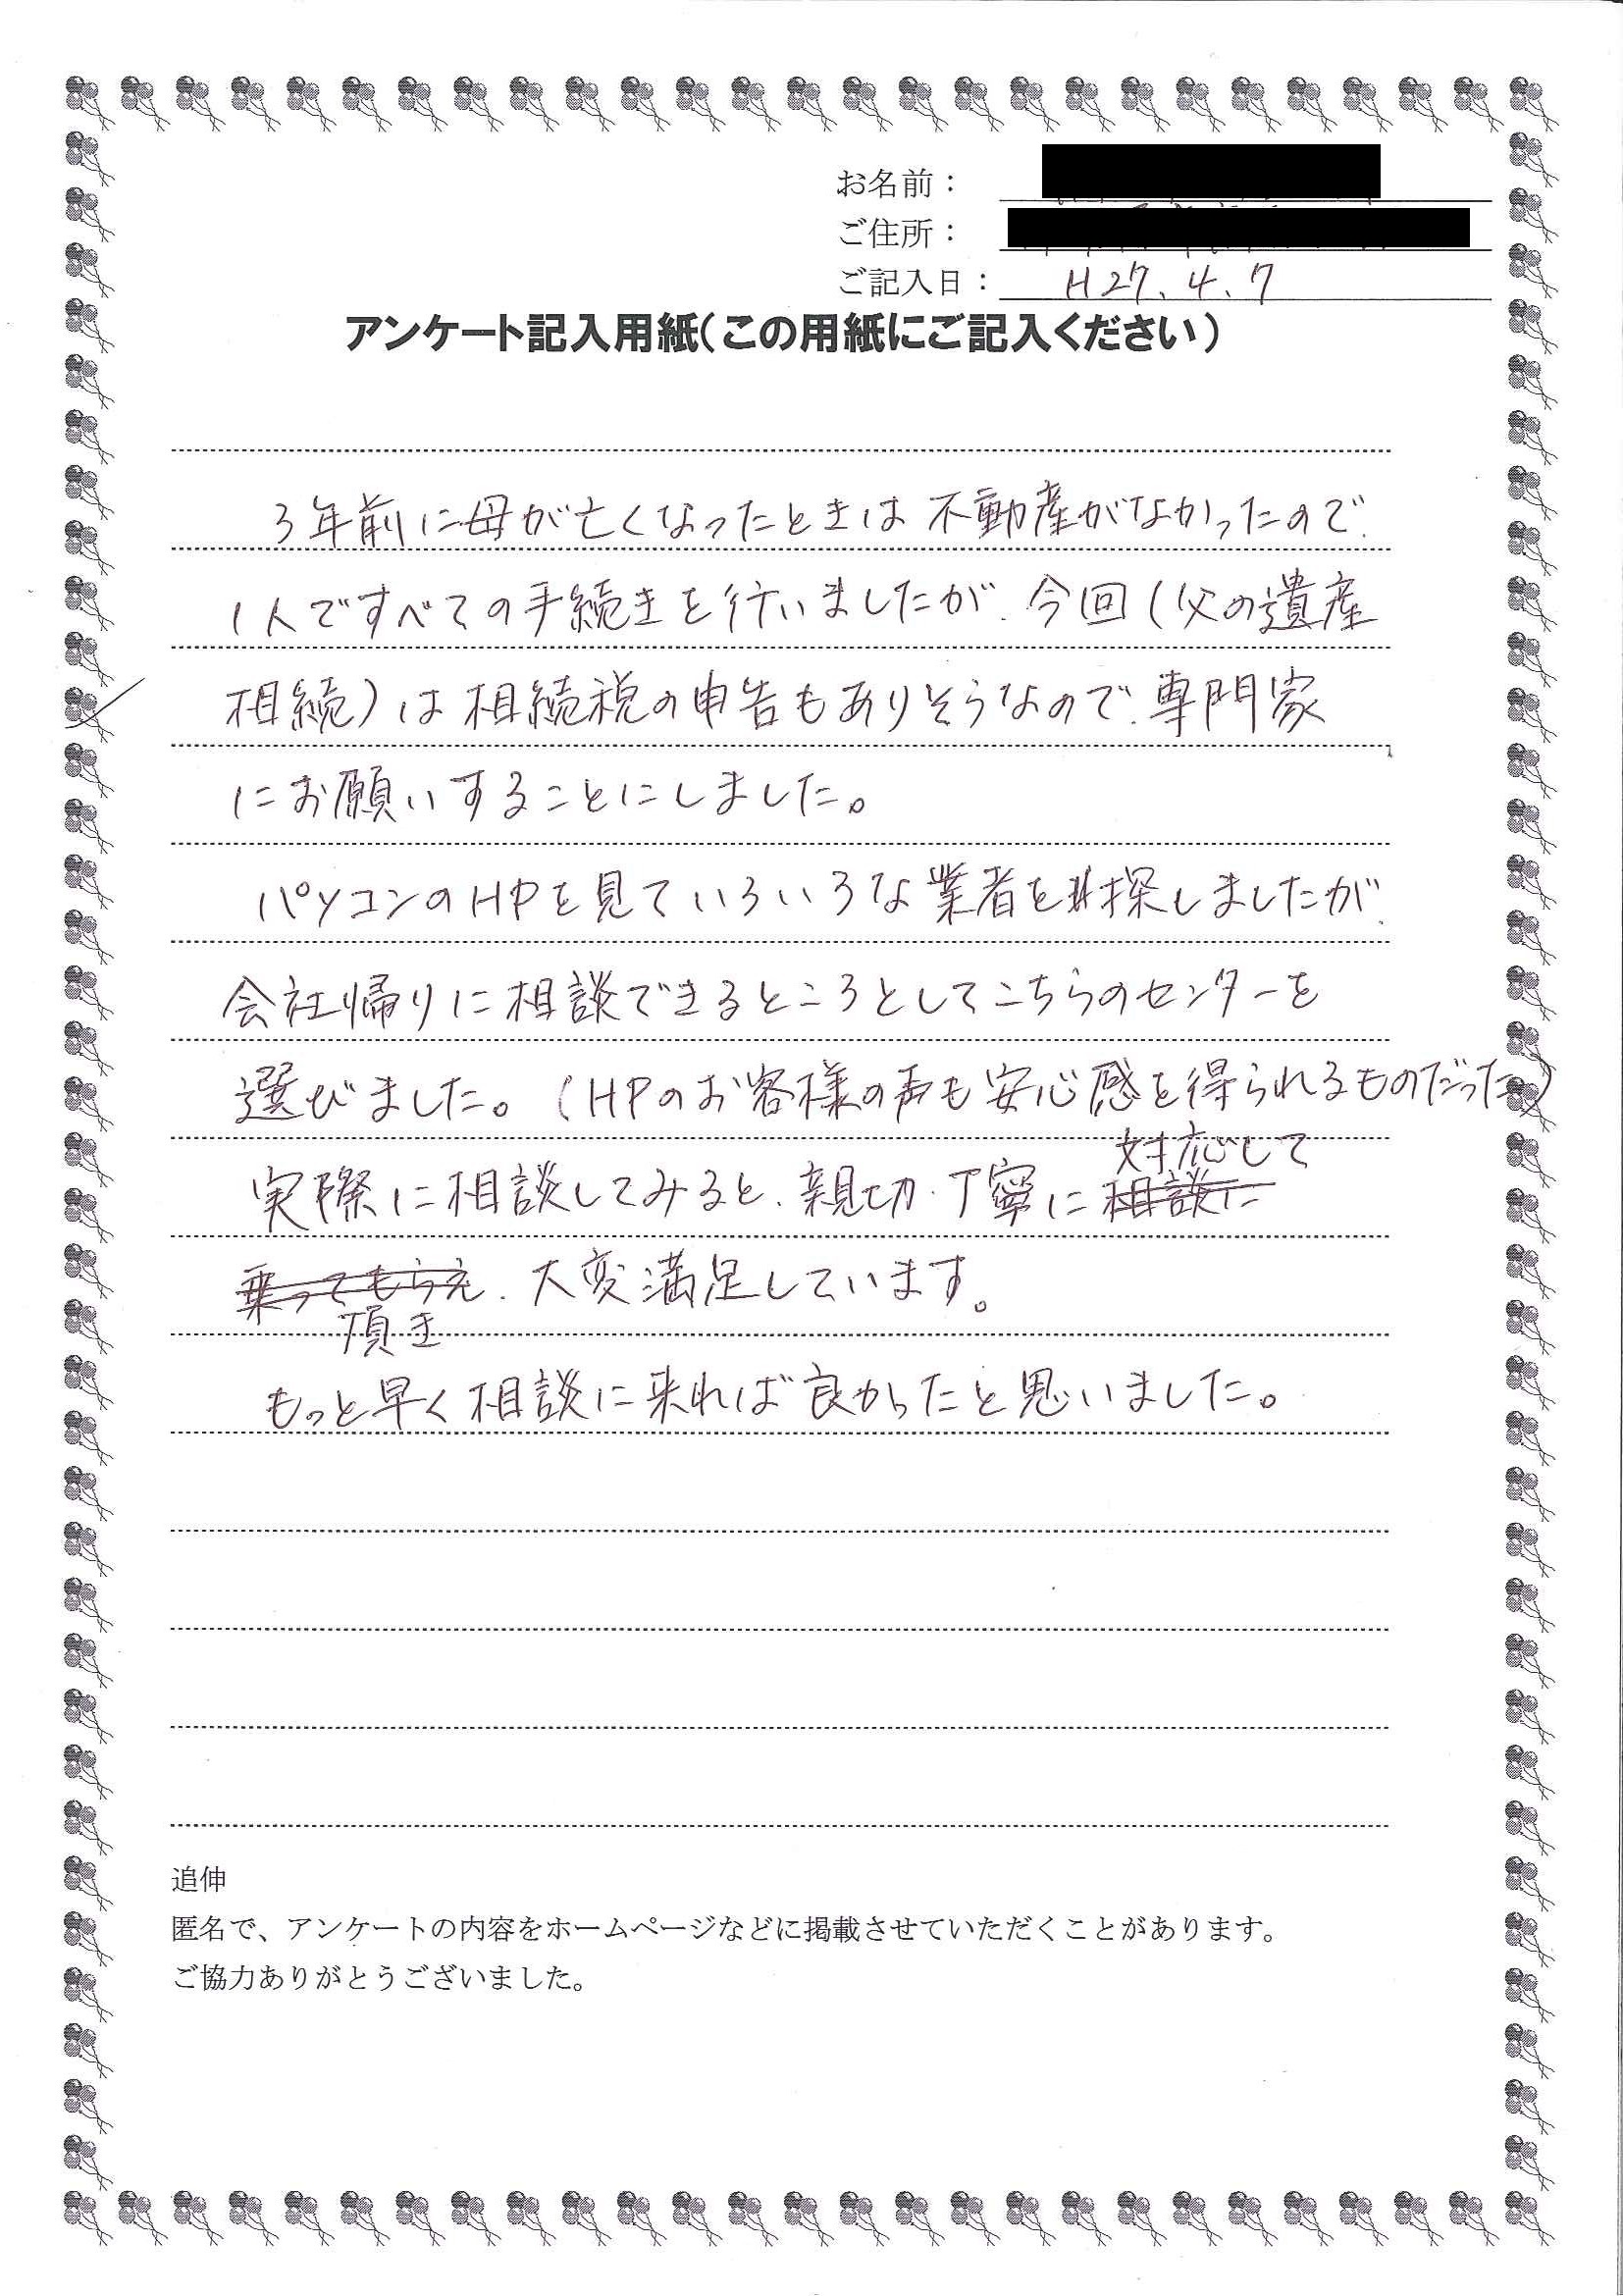 お名前：
ご住所：
ご記入日： H27.4.7
アンケート記入用紙（この用紙にご記入ください）
3年前に母が亡くなったときは不動産がなかったので、
1人ですべての手続きを行いましたが、今回（父の遺産
相続）は相続税の申告もありそうなので、専門家
にお願いすることにしました。
パソコンのHPを見ていろいろな業者を探しましたが、
会社帰りに相談できるところとしてこちらのセンターを
選びました。（HPのお客様の声も安心感を得られるものだった）
対応して
実際に相談してみると、親切・丁寧に相談に
乗ってもらえ、大変満足しています。
頂き
もっと早く相談に来れば良かったと思いました。
追伸
匿名で、アンケートの内容をホームページなどに掲載させていただくことがあります。
ご協力ありがとうございました。